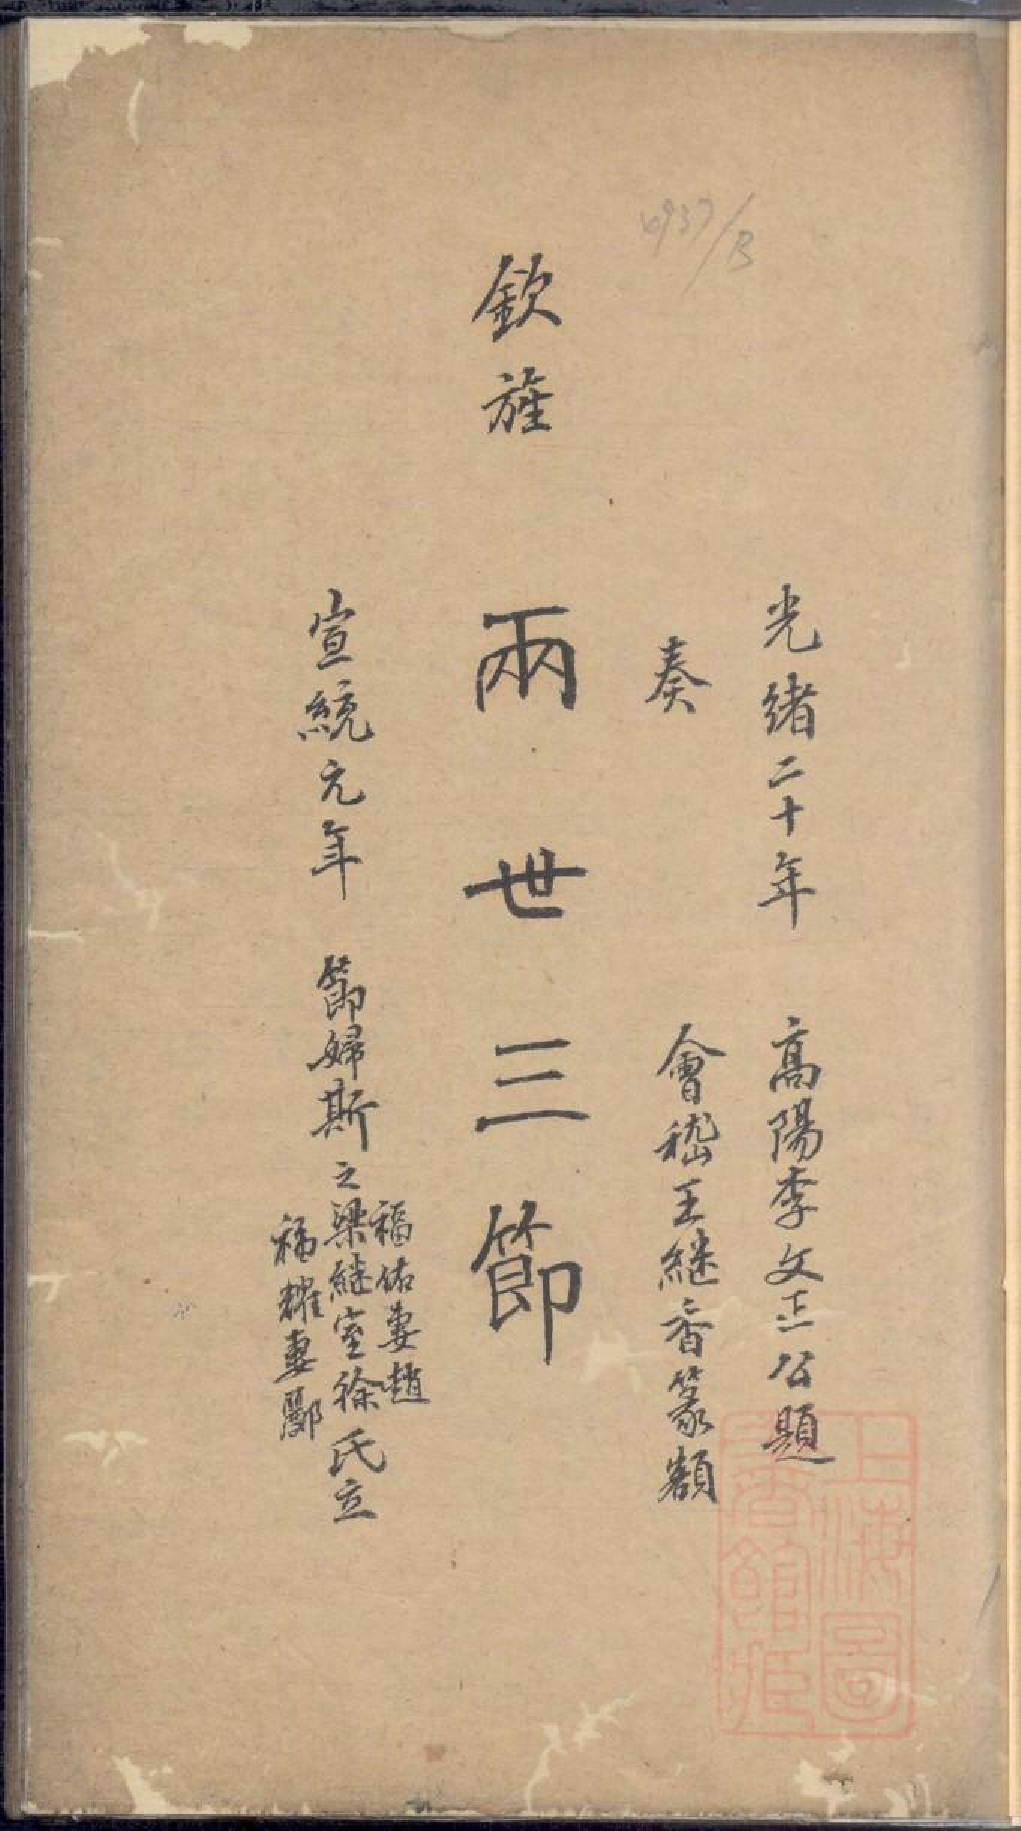 光緒二十年 高陽李文正公題
奏 會稽王继香篆額
欽旌 兩世三節
福佑妻趙
宣統元年 節婦斯之梁継室徐氏立
福耀妻酈
上海圖
書館藏